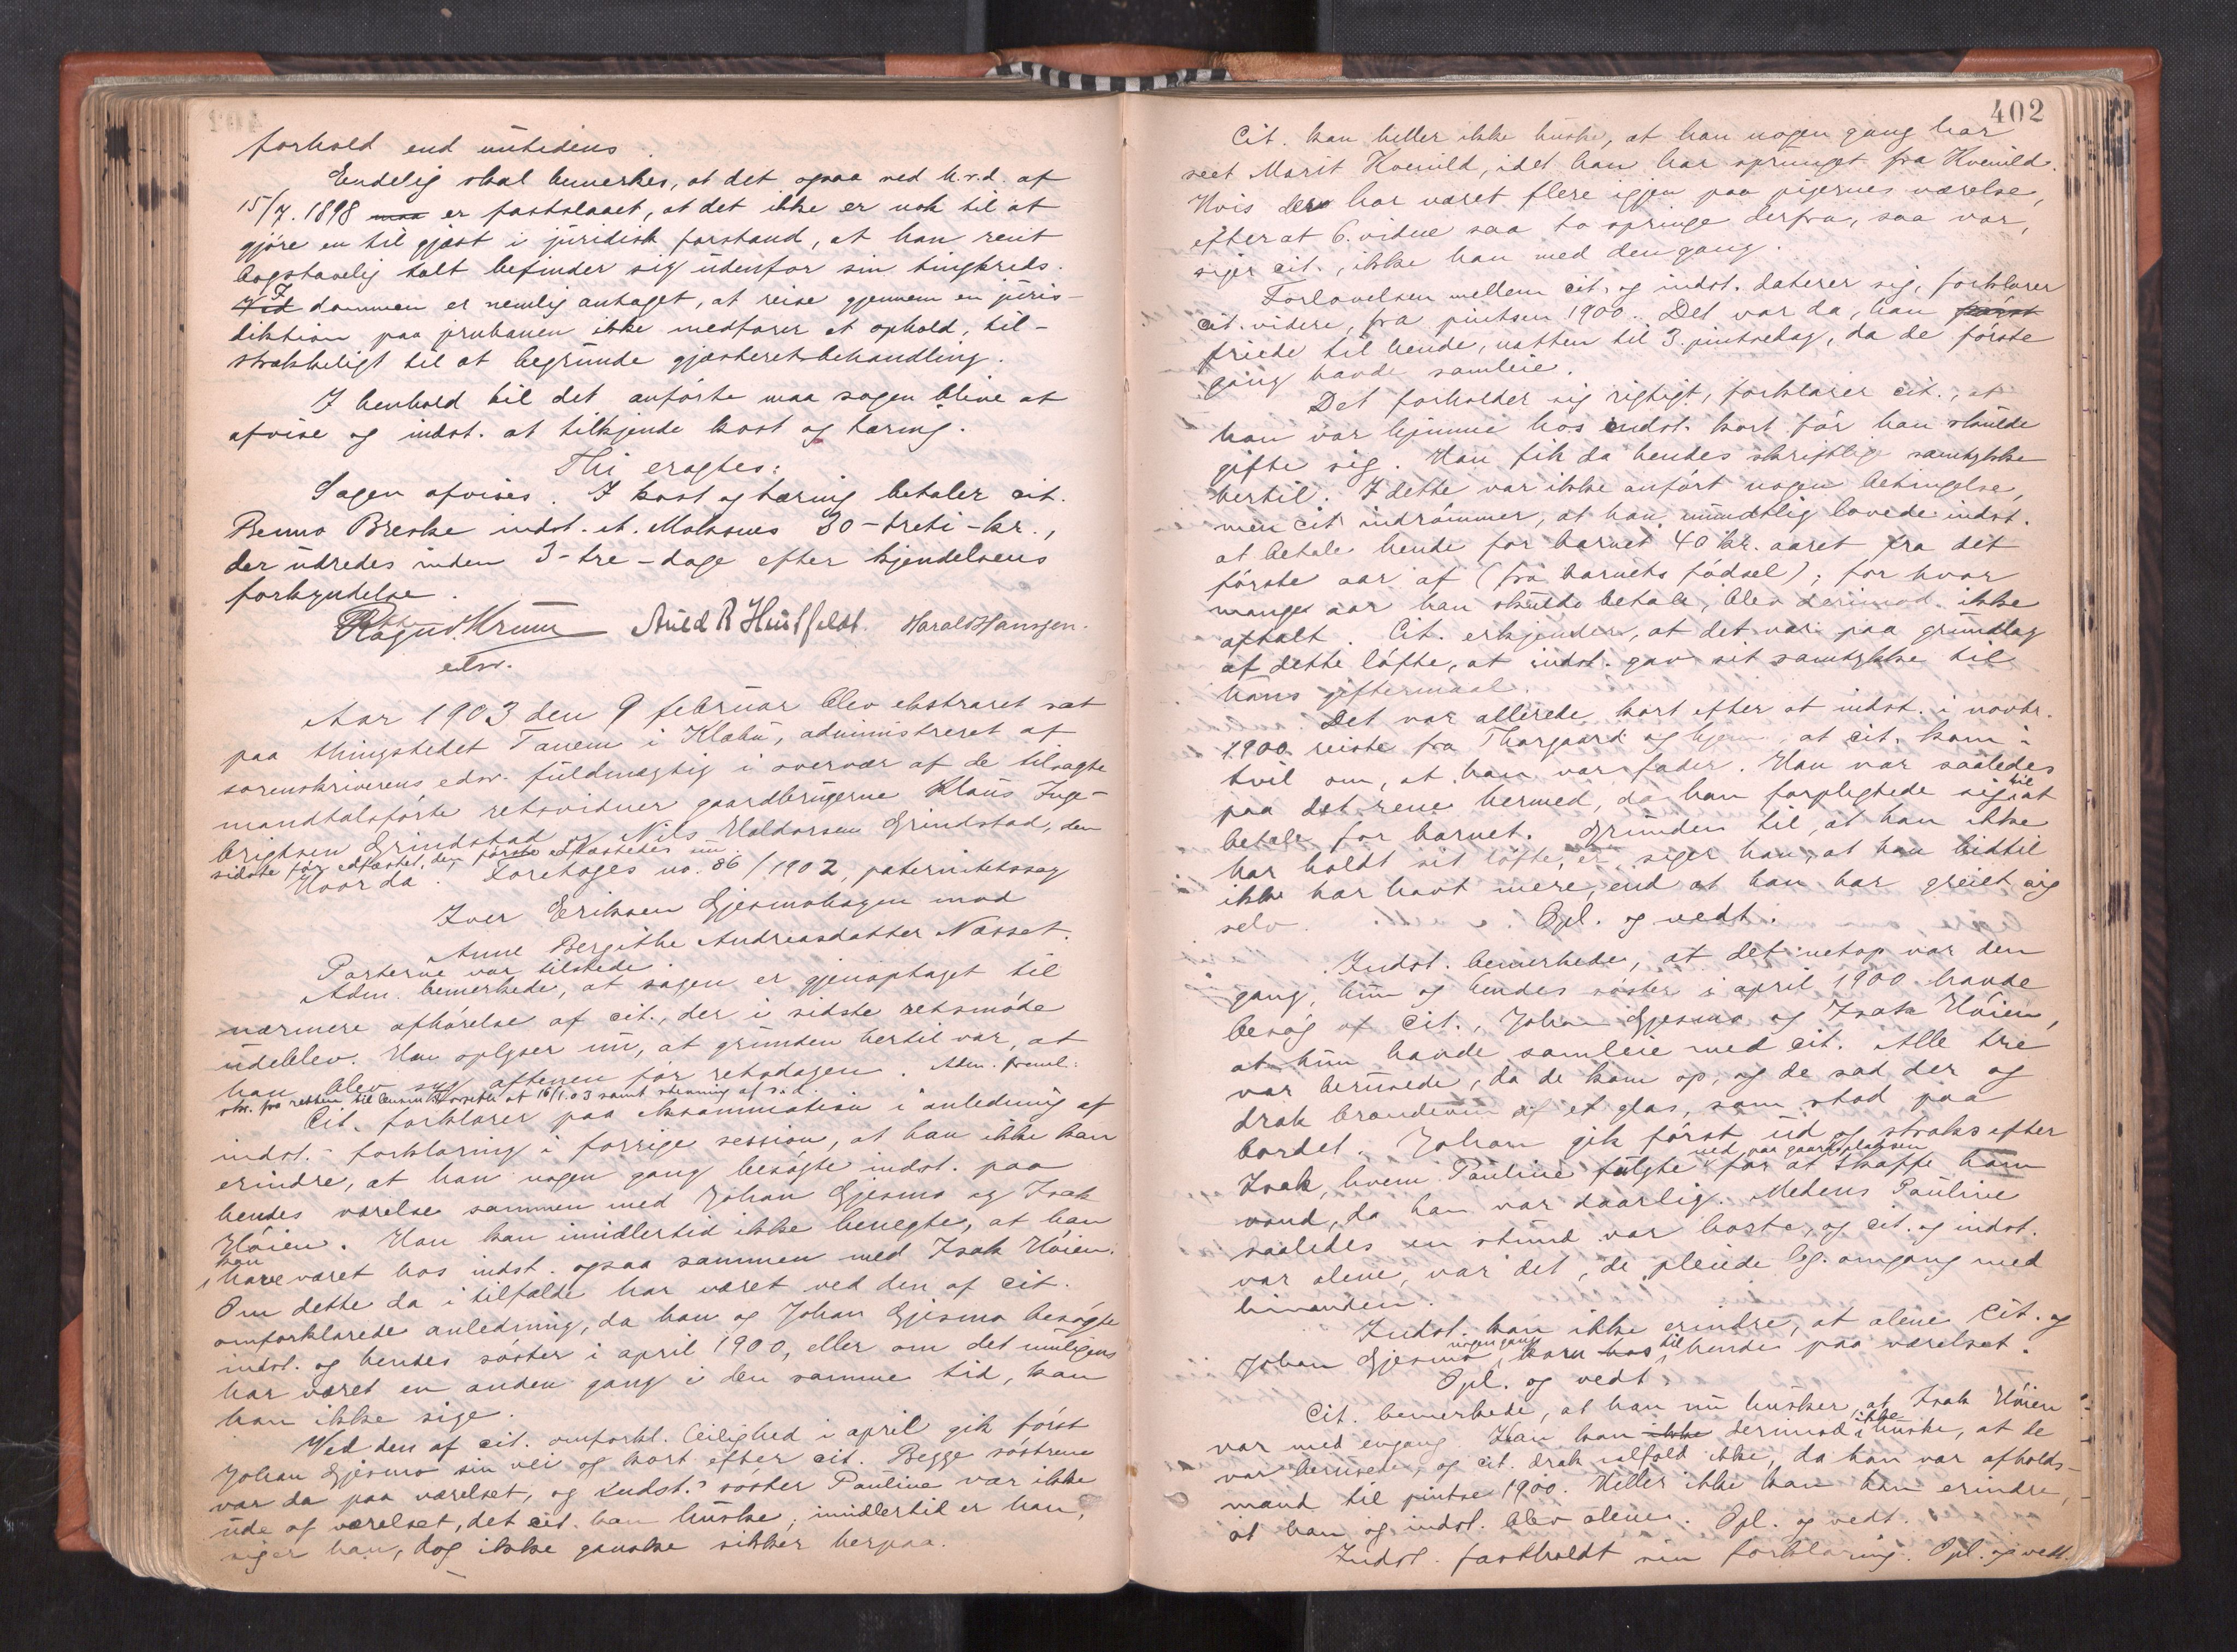 forhold end nutidens.
Endelig skal bemerkes, at det ogsaa ved h.r.d. af
15/7. 1898 maa er fastslaaet, at det ikke er nok til at
gjøre en til gjæst i juridisk forstand, at han rent
bogstavelig talt befinder sig udenfor sin tingkreds.
Ved I dommen er nemlig antaget, at reise gjennem en juris-
diktion paa jernbanen ikke medfører et ophold, til-
strækkeligt til at begrunde gjæsteretsbehandling.
I henhold til det anførte maa sagen blive at
afvise og indst. at tilkjende kost og tæring.
Thi eragtes:
Sagen afvises. I kost og tæring betaler cit.
Benno Breske indst. A. Moksnes 30-treti-kr.,
der udredes inden 3-tre-dage efter kjendelsens
forkyndelse.
Ragnv. Krum Auld R Huitfeldt. Harald Hanssen.
edsv.
Aar 1903 den 9 februar blev ekstraret sat
paa thingstedet Tanem i Klæbu, administreret af
sorenskriverens edsv. fuldmægtig i overvær af de tilsagte
mandtalsførte retsvidner gaardbrugerne Klaus Inge-
brigtsen Grindstad og Nils Haldorsen Grindstad, den
sidste før edfæstet, den første edfæstedes nu.
Hvorda. Foretoges no. 86/1902, paternitetssag
Iver Eriksen Gjesmohagen mod
Anne Bergithe Andreasdatter Næsset.
Parterne var tilstede.
Adm. bemerkede, at sagen er gjenoptaget til
nærmere afhørelse af cit., der i sidste retsmøde
udeblev. Han oplyser nu, at grunden hertil var, at
han blev syg aftenen før retsdagen. Adm. freml.:
skr. fra retten til lensm. af 16/1.03 samt stevning af s.d.
Cit. forklarer paa eksammination i anledning af
indst.s forklaring i forrige session, at han ikke kan
erindre, at han nogen gang besøgte indst. paa
hendes værelse sammen med Johan Gjesmo og Isak
Høien. Han kan imidlertid ikke benegte, at han
kan have været hos indst. ogsaa sammen med Isak Høien.
Om dette da i tilfælde har været ved den af cit.
omforklarede anledning, da han og Johan Gjesmo besøgte
indst. og hendes søster i april 1900, eller om det muligens
har været en anden gang i den samme tid, kan
han ikke sige.
Ved den af cit. omforkl. leilighed i april gik først
Johan Gjesmo sin vei og kort efter cit. Begge søstrene
var da paa værelset, og indst.s søster Pauline var ikke
ude af værelset, det cit. kan huske; imidlertid er han,
siger han, dog ikke ganske sikker herpaa.
402
Cit. kan heller ikke huske, at han nogen gang har
seet Marit Kvenild, idet han har sprunget fra Kvenild.
Hvis der har været flere igjen paa pigernes værelse,
efterat 6. vidne saa to springe derfra, saa var,
siger cit., ikke han med dengang.
Forlovelsen mellem cit. og indst. daterer sig, forklarer
cit. videre, fra pintsen 1900. Det var da, han først
friede til hende, natten til 3. pintsedag, da de første
gang havde samleie.
Det forholder sig rigtigt, forklarer cit., at
han var hjemme hos indst. kort før han skulde
gifte sig. Han fik da hendes skriftlige samtykke
hertil. I dette var ikke anført nogen betingelse,
men cit. indrømmer, at han mundtlig lovede indst.
at betale hende for barnet 40 kr. aaret fra det
første aar af (fra barnets fødsel); for hvor
mange aar han skulde betale, blev derimod ikke
aftalt. Cit. erkjender, at det var paa grundlag
af dette løfte, at indst. gav sit samtykke til
hans giftermaal.
Det var allerede kort efter at indst. i novbr.
1900 reiste fra Thorgaard og hjem, at cit. kom i
tvil om, at han var fader. Han var saaledes
paa det rene hermed, da han forpligtede sig til at
betale for barnet. Grunden til, at han ikke
har holdt sit løfte, er, siger han, at han hidtil
ikke har havt mere, end at han har greiet sig
selv. Opl. og vedt.
Indst. bemerkede, at det netop var den
gang, hun og hendes søster i april 1900 havde
besøg af cit., Johan Gjesmo og Isak Høien,
at hun havde samleie med cit. Alle tre
var berusede, da de kom op, og de sad der og
drak brændevin af et glas, som stod paa
bordet. Johan gik først ud og straks efter
Isak, hvem Pauline fulgte ned paa gaardspladsen for at skaffe ham
vand, da han var daarlig. Medens Pauline
saaledes en stund var borte, og cit. og indst.
var alene, var det, de pleiede leg. omgang med
hinanden.
Indst. kan ikke erindre, at alene cit. og
Johan Gjesmo nogengang kom hos til hende paa værelset.
Opl. og vedt.
Cit. bemerkede, at han nu husker, at Isak Høien
var med engang. Han kan ikke derimod ikke huske, at de
var berusede, og cit. drak ialfald ikke, da han var afholds-
mand til pintse 1900. Heller ikke kan han erindre,
at han og indst. blev alene. Opl. og vedt.
Indst. fastholdt sin forklaring. Opl. og vedt.